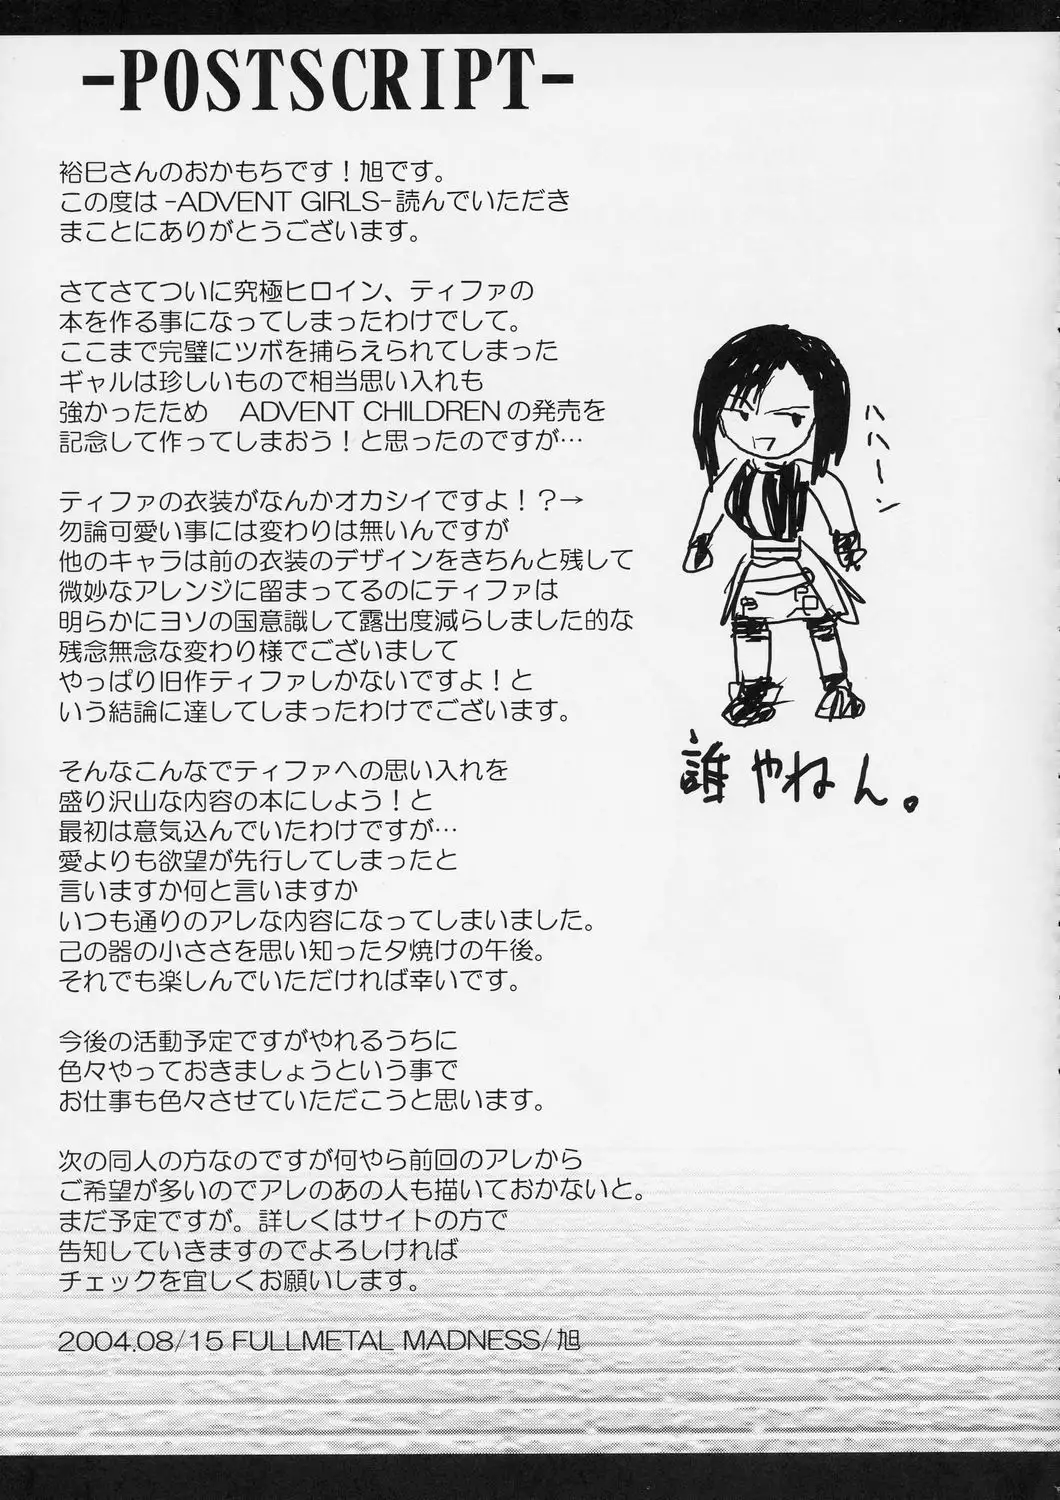 -POSTSCRIPT-
裕巳さんのおかもちです！旭です。
この度は -ADVENT GIRLS- 読んでいただき
まことにありがとうございます。
さてさてついに究極ヒロイン、ティファの
本を作る事になってしまったわけでして。
ここまで完璧にツボを捕らえられてしまった
ギャルは珍しいもので相当思い入れも
強かったため　ADVENT CHILDRENの発売を
記念して作ってしまおう！と思ったのですが…
ティファの衣装がなんかオカシイですよ！？→
勿論可愛い事には変わりは無いんですが
他のキャラは前の衣装のデザインをきちんと残して
微妙なアレンジに留まってるのにティファは
明らかにヨソの国意識して露出度減らしました的な
残念無念な変わり様でございまして
やっぱり旧作ティファしかないですよ！と
いう結論に達してしまったわけでございます。
そんなこんなでティファへの思い入れを
盛り沢山な内容の本にしよう！と
最初は意気込んでいたわけですが…
愛よりも欲望が先行してしまったと
言いますか何と言いますか
いつも通りのアレな内容になってしまいました。
己の器の小ささを思い知った夕焼けの午後。
それでも楽しんでいただければ幸いです。
今後の活動予定ですがやれるうちに
色々やっておきましょうという事で
お仕事も色々させていただこうと思います。
次の同人の方なのですが何やら前回のアレから
ご希望が多いのでアレのあの人も描いておかないと。
まだ予定ですが。詳しくはサイトの方で
告知していきますのでよろしければ
チェックを宜しくお願いします。
2004.08/15 FULLMETAL MADNESS/旭
ハハーン
誰やねん。